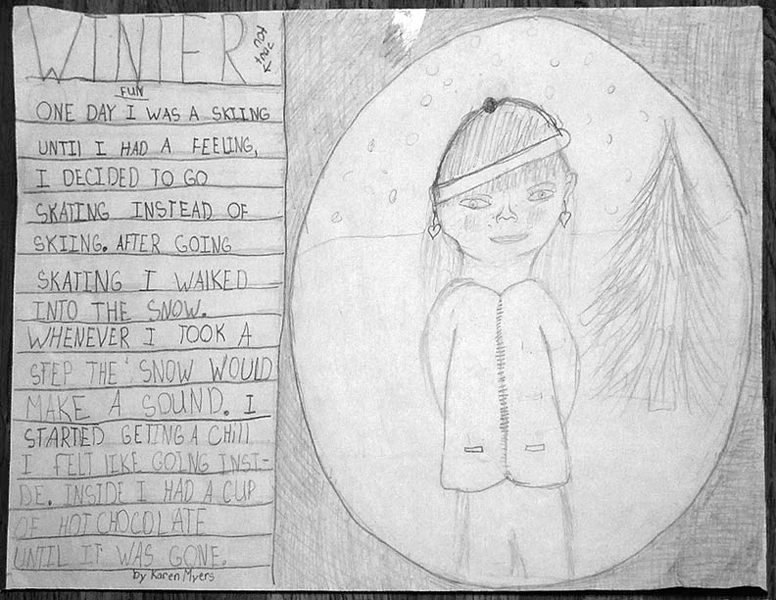 WINTER
FUN
not
true
ONE DAY I WAS A SKIING
UNTIL I HAD A FEELING,
I DECIDED TO GO
SKATING INSTEAD OF
SKIING. AFTER GOING
SKATING I WALKED
INTO THE SNOW.
WHENEVER I TOOK A
STEP THE SNOW WOULD
MAKE A SOUND. I
STARTED GETING A CHILL
I FELT LIKE GOING INSI-
DE. INSIDE I HAD A CUP
OF HOT CHOCOLATE
UNTIL IT WAS GONE.
by Karen Myers